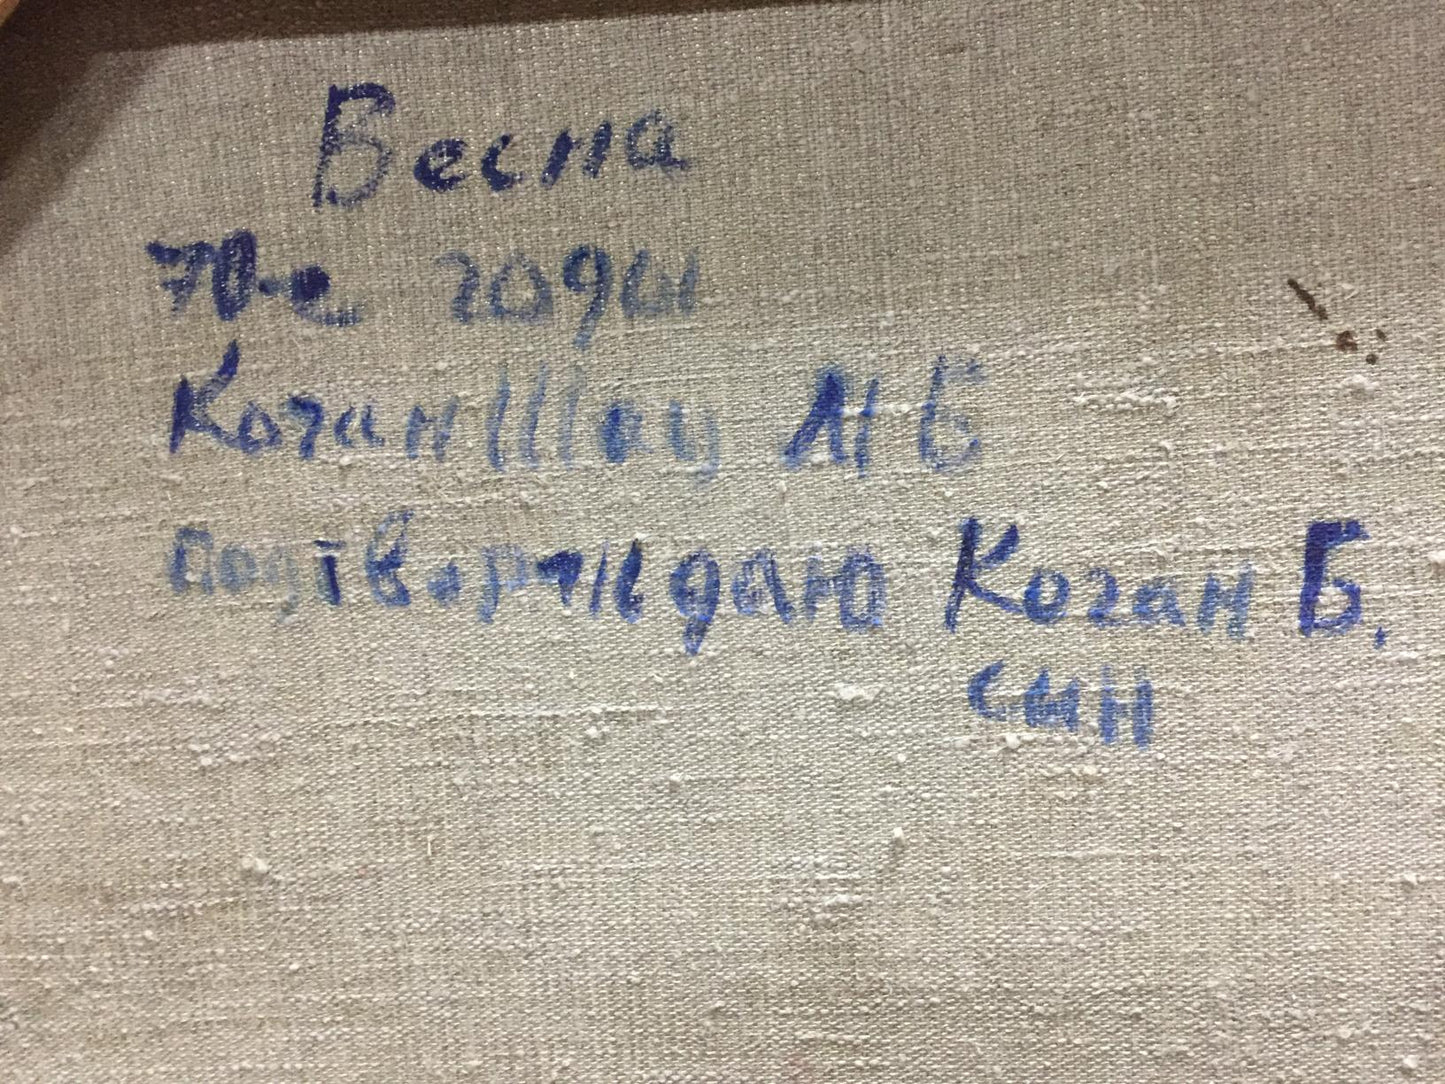 Весна
70-е годы
Коган Шац М Б
подтверждаю Коган Б.
сын